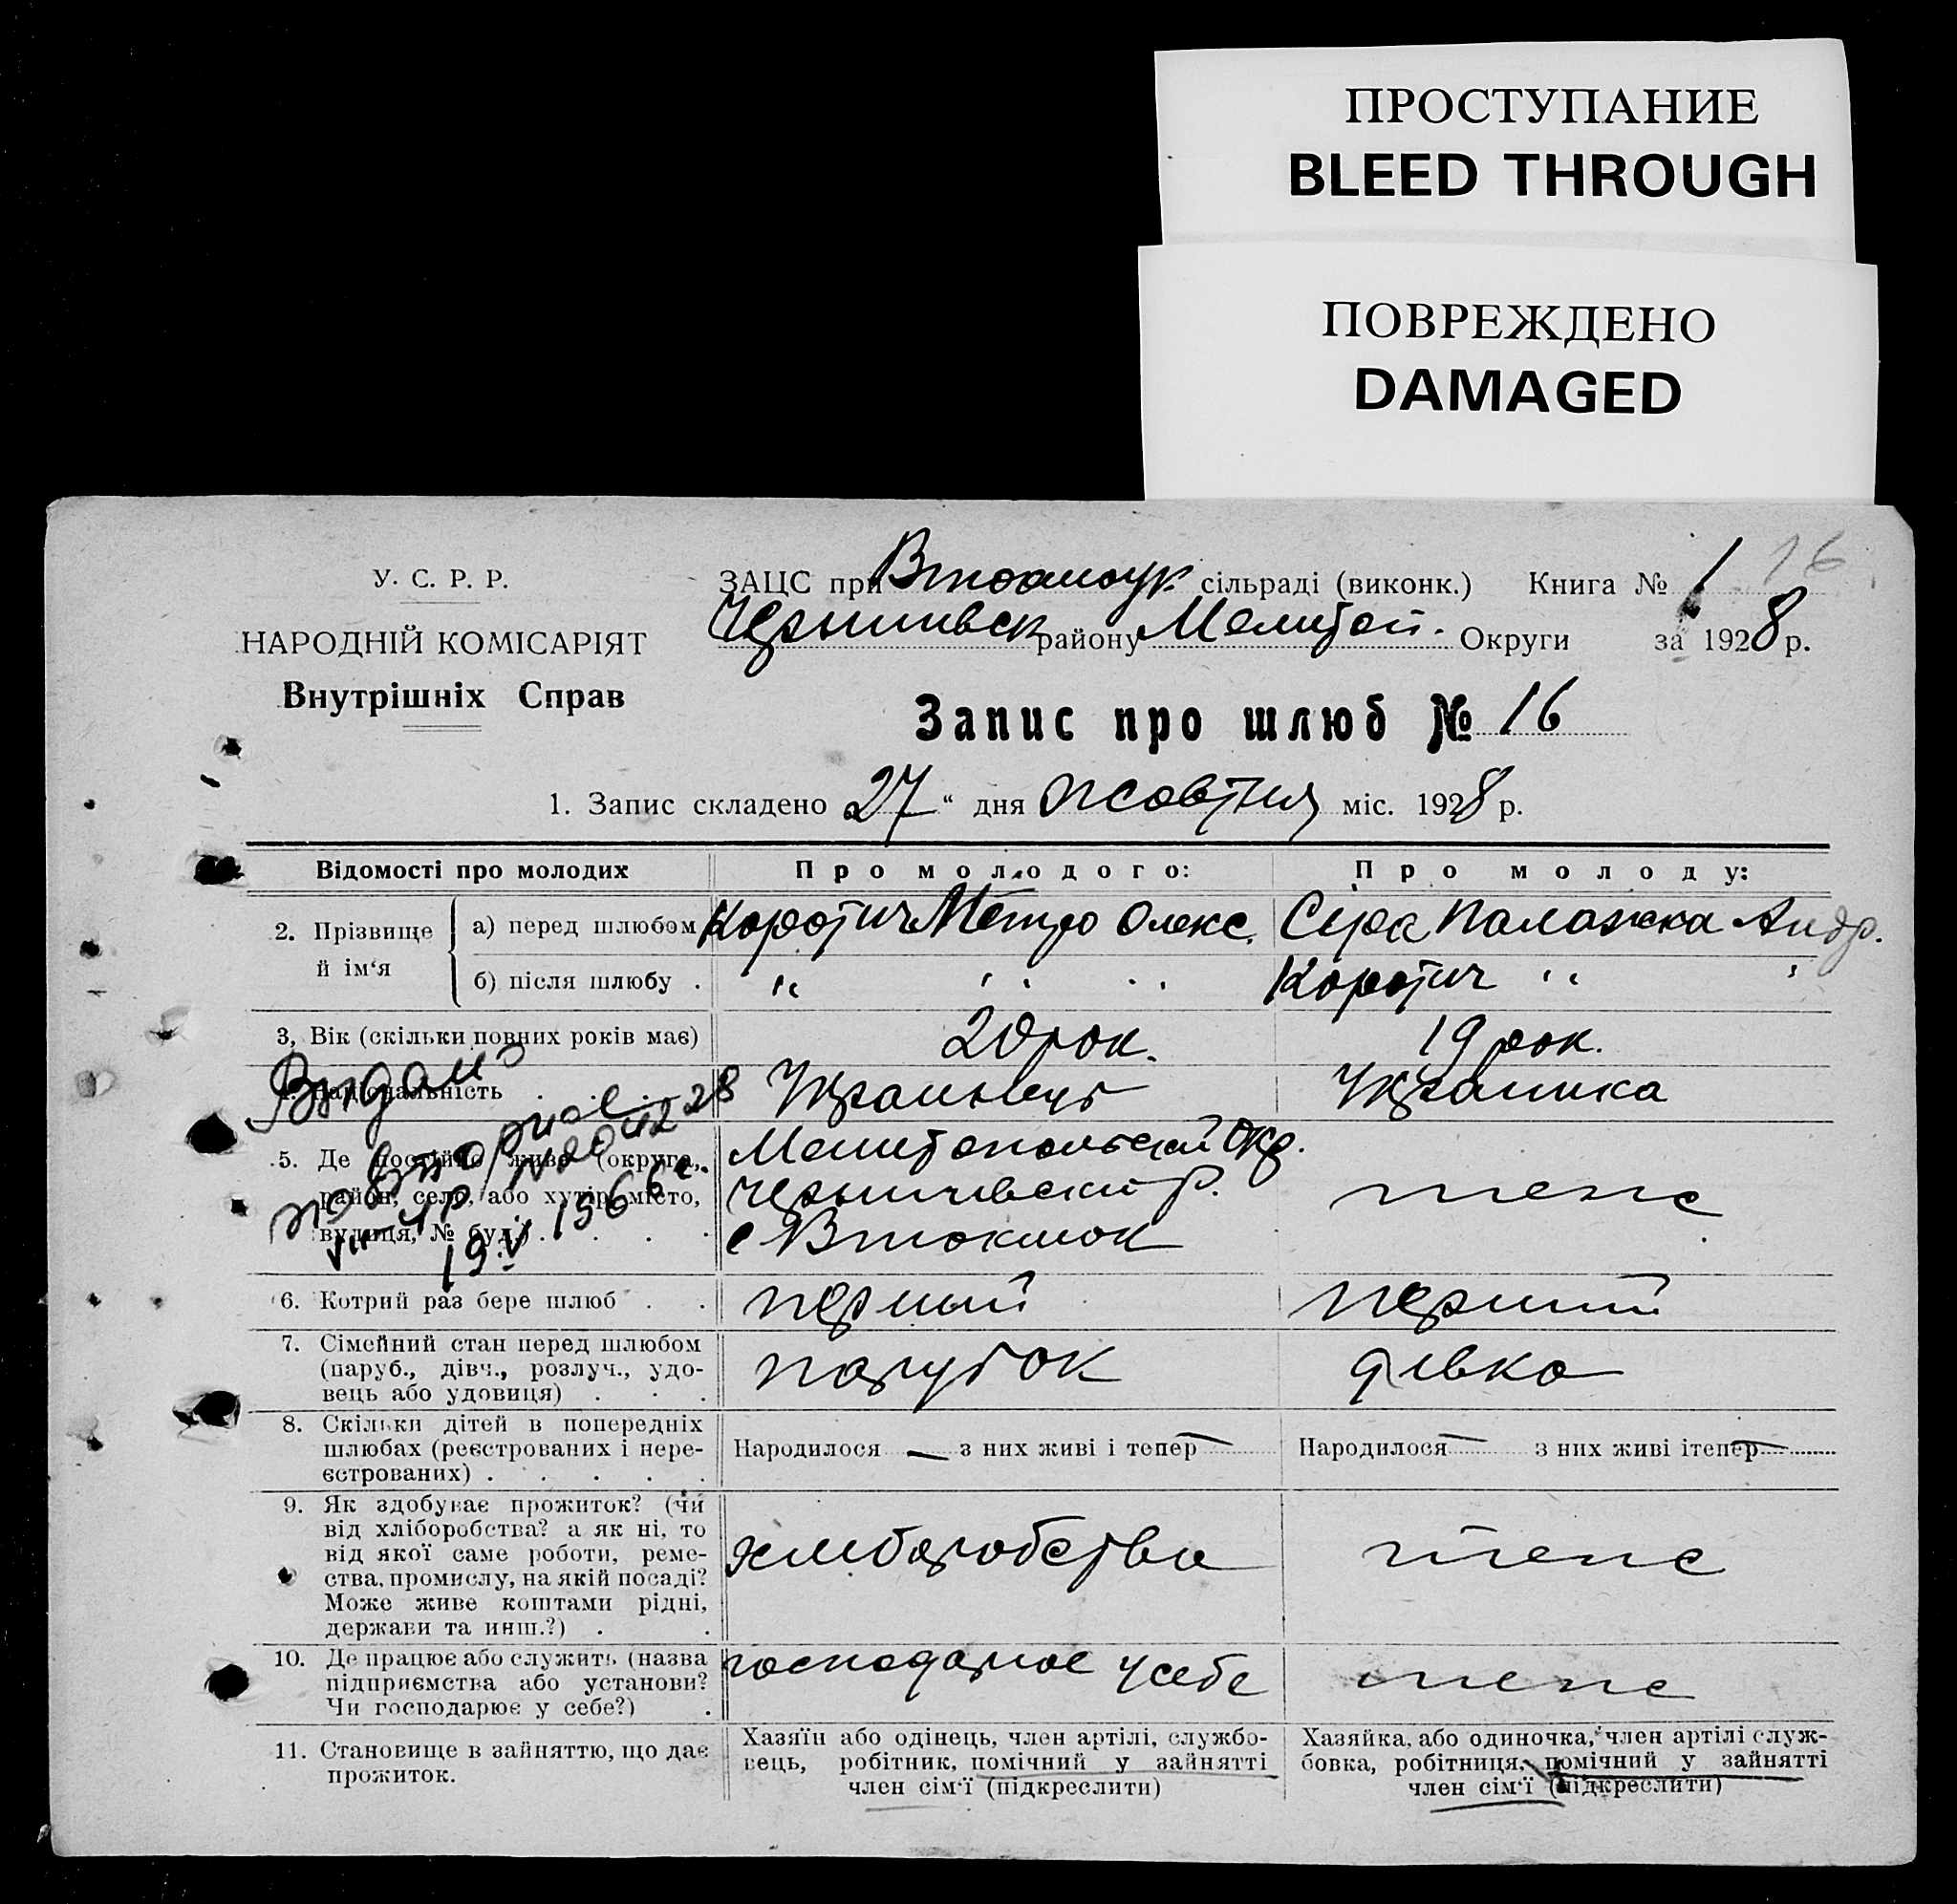 ПРОСТУПАНИЕ
BLEED THROUGH
ПОВРЕЖДЕНО
DAMAGED
У. С. Р. Р.
НАРОДНІЙ КОМІСАРІЯТ
Внутрішніх Справ
ЗАЦС при Втокмоцк сільраді (виконк.) Книга № 1 16
Чернигивск району Мелитоп. Округи за 1928 р.
Запис про шлюб № 16
1. Запис складено 27 “ дня жовтня міс. 1928 р.
Відомості про молодих Про молодого: Про молоду:
2. Прізвище й ім‘я а) перед шлюбом Коротич Метро Олекс. Сіра Палажка Андр.
б) після шлюбу . " " " Коротич " "
3, Вік (скільки повних років має) 20 рок. 19 рок.
4. Національність Украинец Украинка
5. Де постійно живе (округа, район, село, або хутір, місто, вулиця, № буд.) Мелитопольский Окр.
Чернигивский р. теже
с Втокмок
Видано
повторное
19 V 1966 г.
6. Котрий раз бере шлюб . . первый перший
7. Сімейний стан перед шлюбом парубок дівка
(паруб., дівч., розлуч., удо-
вець або удовиця) . . .
8. Скільки дітей в попередніх
шлюбах (реєстрованих і нере- Народилося — з них живі і тепер — Народилося — з них живі ітепер —
єстрованих) . . . . .
9. Як здобуває прожиток? (чи
від хліборобства? а як ні, то
від якої саме роботи, реме- хлиборобства теже
ства, промислу, на якій посаді?
Може живе коштами рідні,
держави та инш.?) . .
10. Де працює або служить (назва господарює у себе теже
підприємства або установи?
Чи господарює у себе?) .
11. Становище в зайняттю, що дає
прожиток.
Хазяїн або одінець, член артілі, службо-
вець, робітник, помічний у зайнятті
член сім‘ї (підкреслити)
Хазяйка, або одиночка, член артілі служ-
бовка, робітниця, помічний у зайнятті
член сім‘ї (підкреслити)